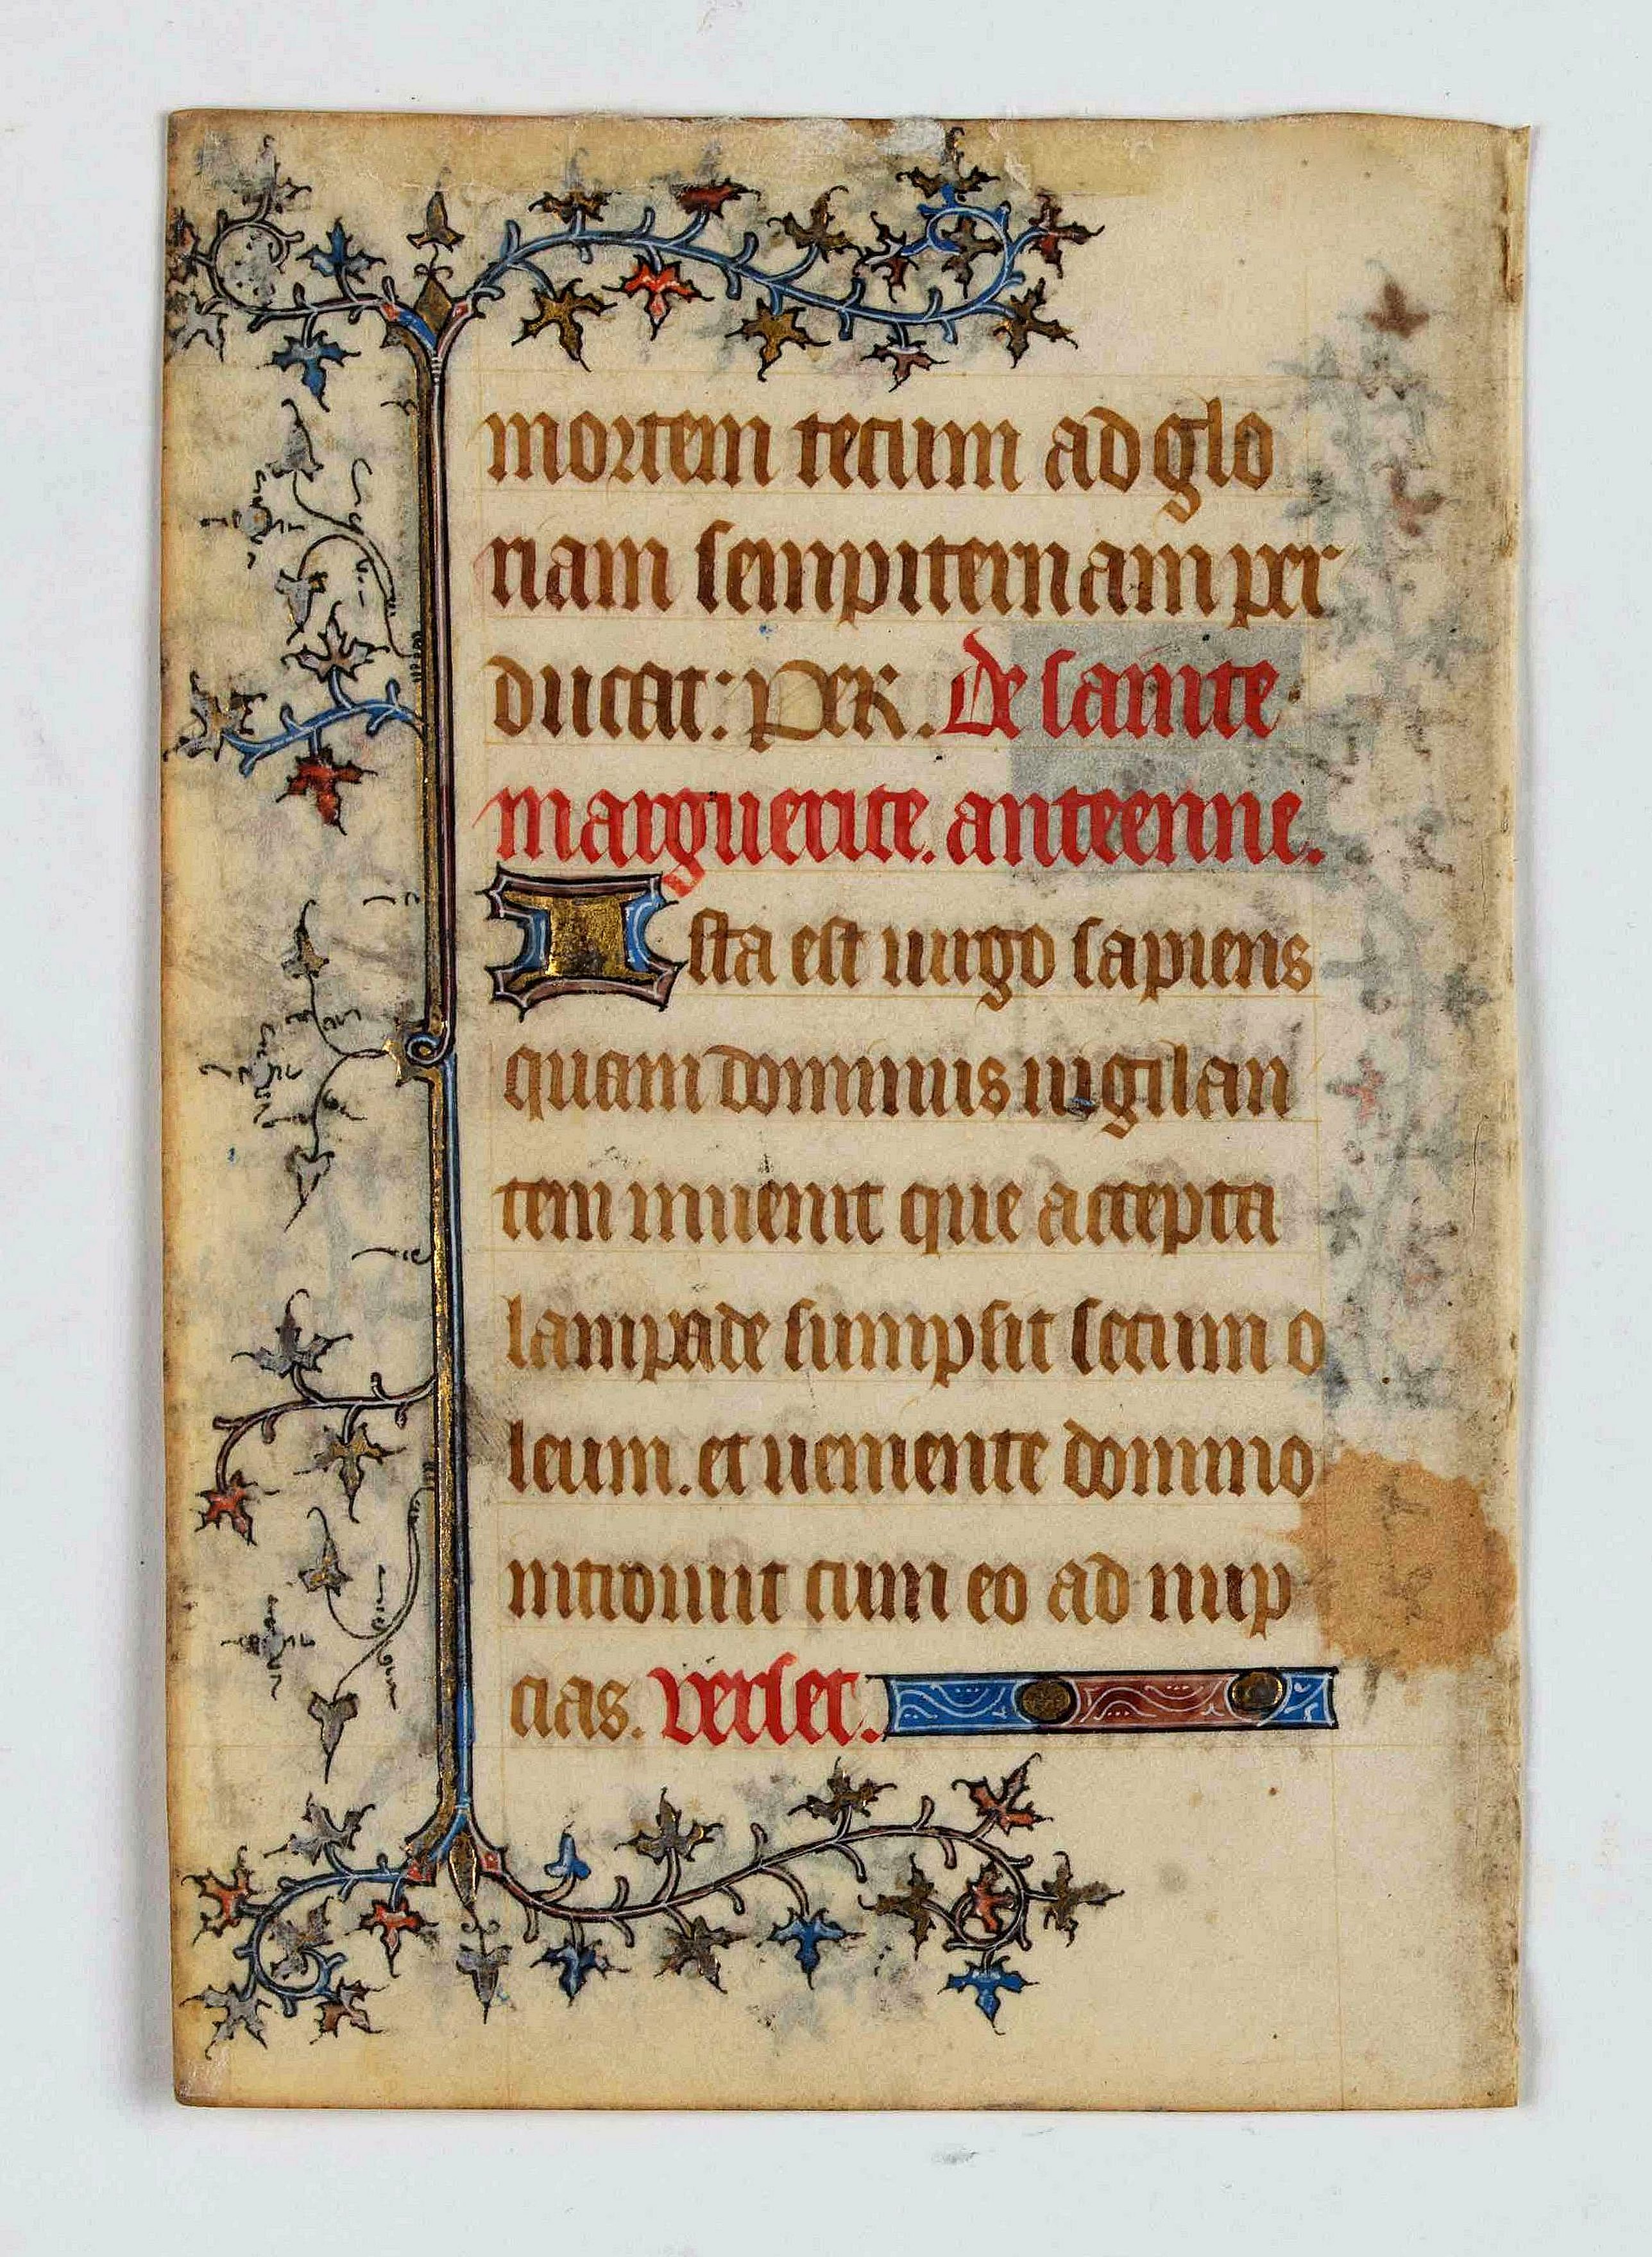 mortem tecum ad glo
riam sempiternam per
ducat: per. De sainte
marguerite. anteenne.
Ista est uirgo sapiens
quam dominus uigilan
tem inuenit que accepta
lampade sumpsit secum o
leum. et ueniente domino
introiuit cum eo ad nup
cias. verset.